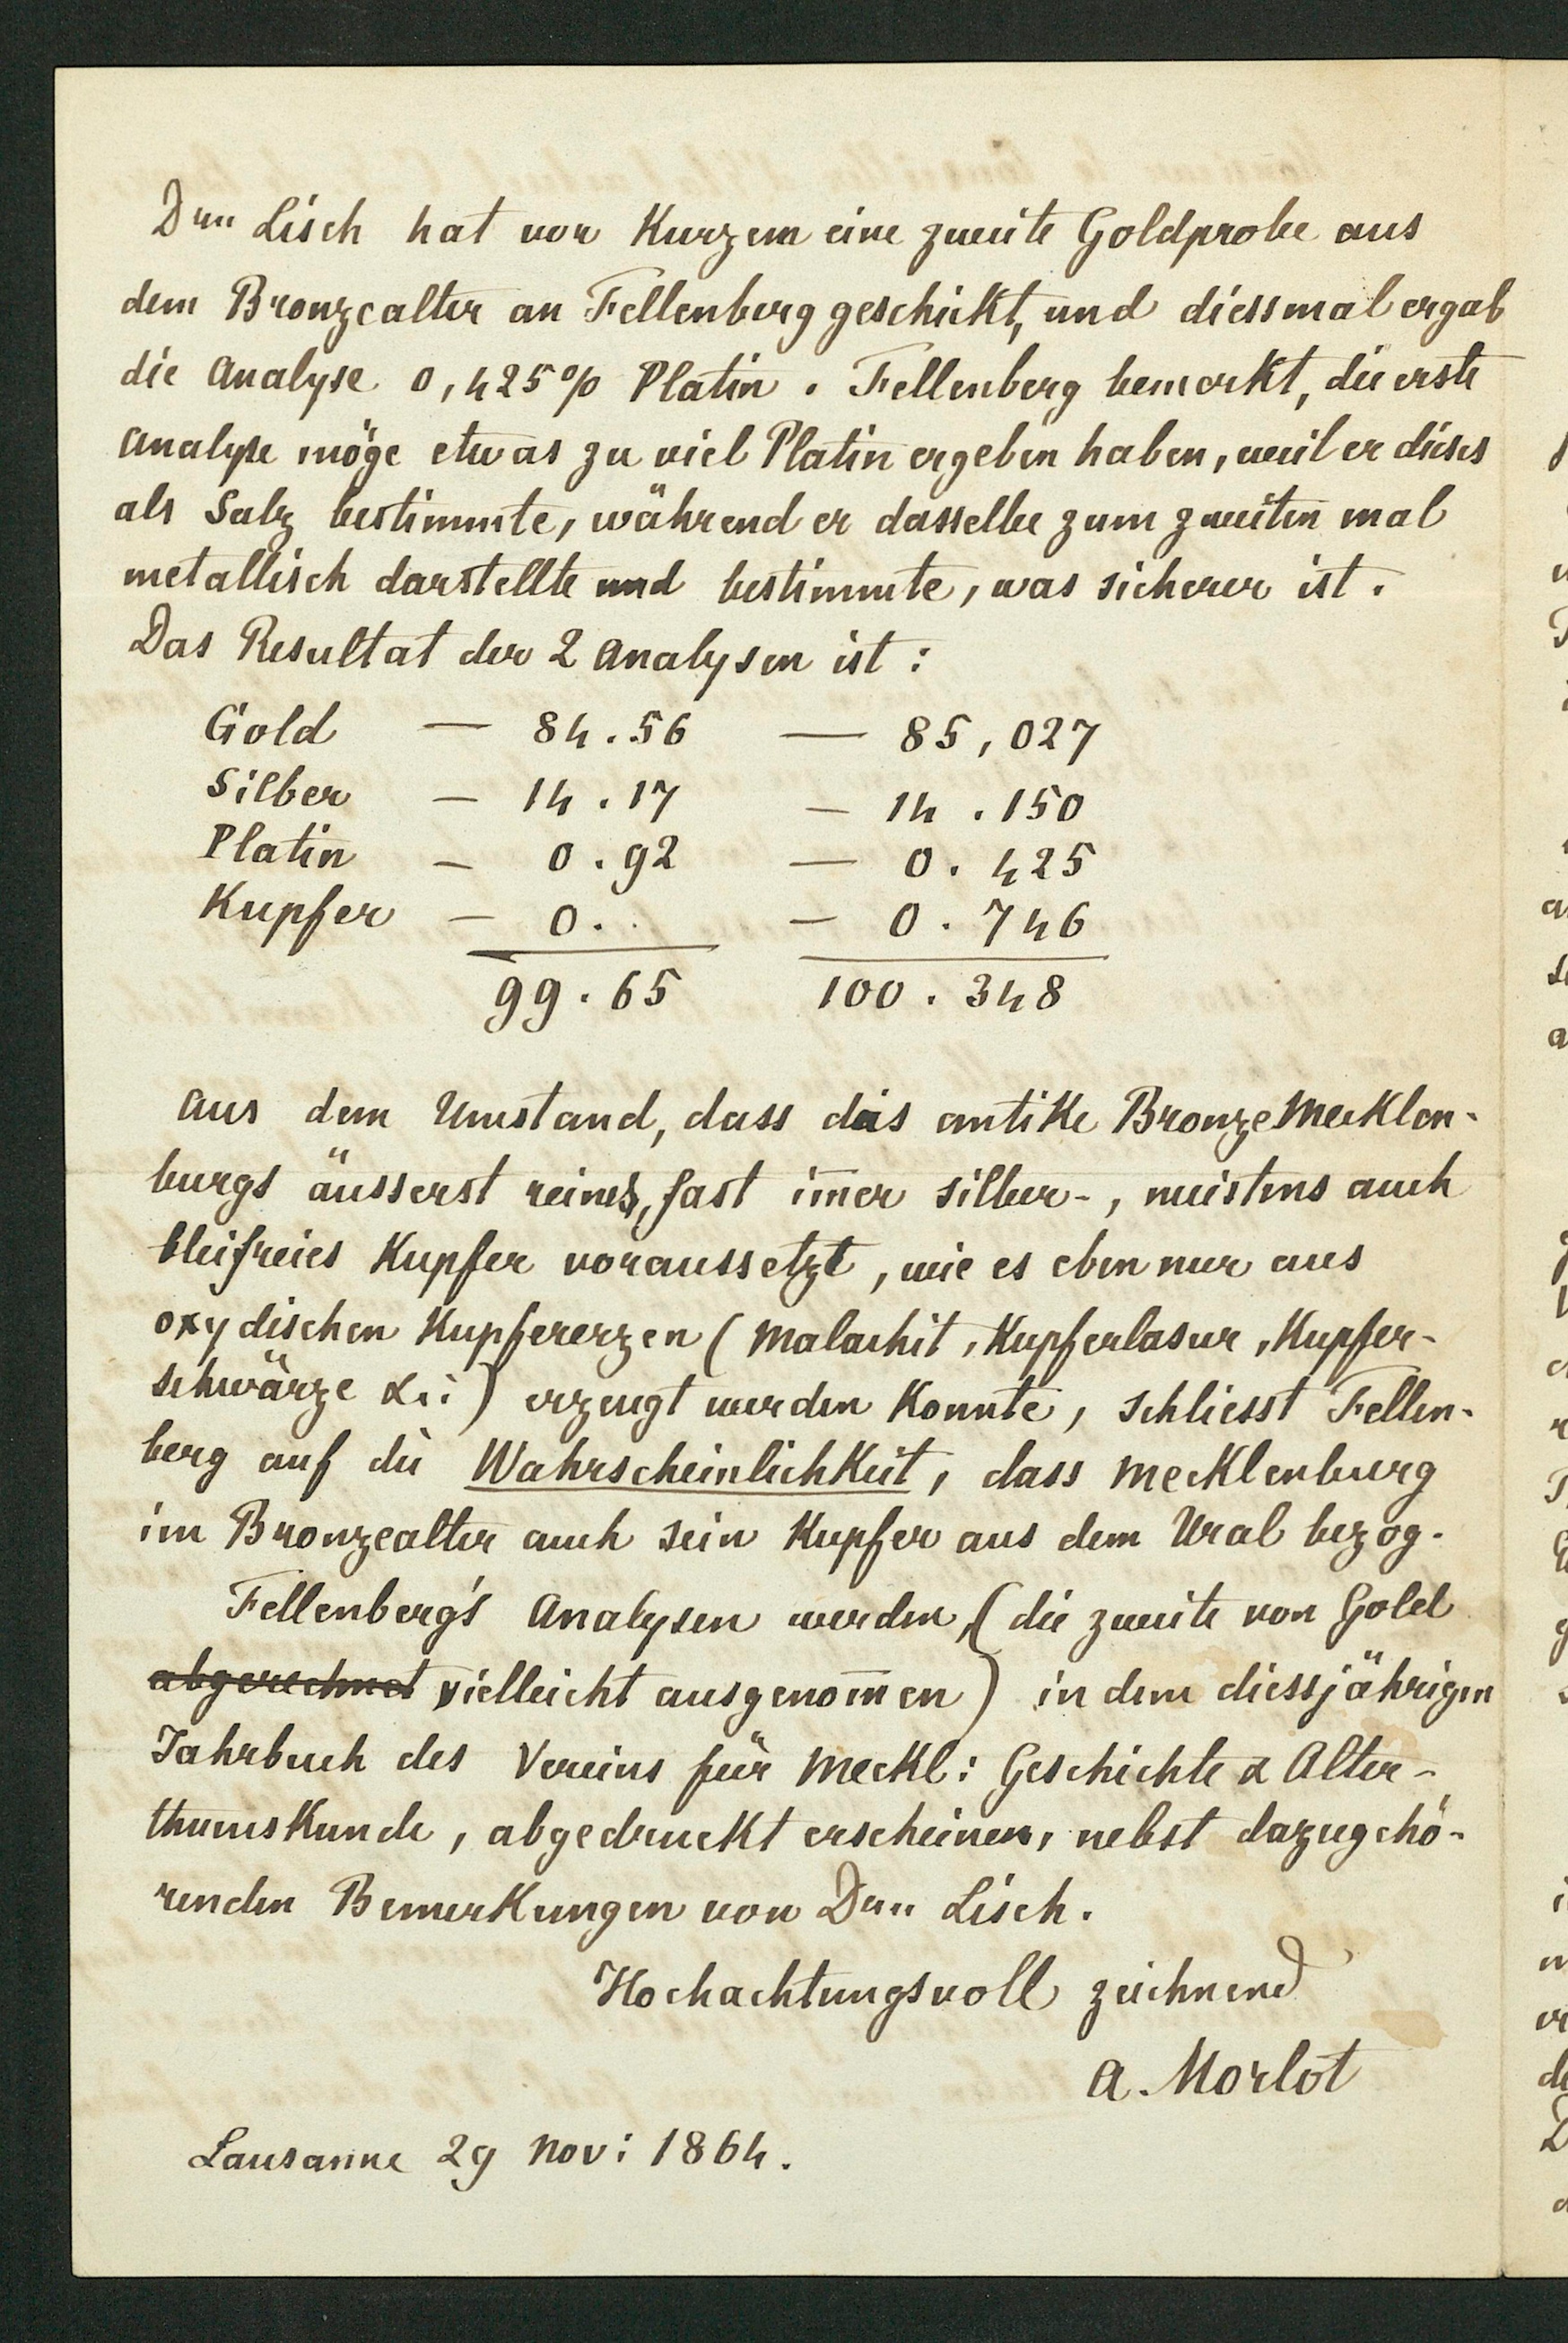 Dr. Lisch hat vor Kurzem eine zweite Goldprobe aus
dem Bronzealter an Fellenberg geschickt, und diessmal ergab
die Analyse 0,425% Platin. Fellenberg bemerkt, die erste
Analyse möge etwas zu viel Platin ergeben haben, weil er dieses
als Salz bestimmte, während er dasselbe zum zweiten mal
metallisch darstellte und bestimmte, was sicherer ist.
Das Resultat der 2 Analysen ist:
Gold — 84.56 — 85,027
Silber — 14.17 — 14.150
Platin — 0.92 — 0.425
Kupfer — 0. — 0.746
99.65 100.348
Aus dem Umstand, dass das antike Bronze Mecklen-
burgs äusserst reines, fast im̄er silber-, meistens auch
bleifreies Kupfer voraussetzt, wie es eben nur aus
oxydischen Kupfererzen (Malachit, Kupferlasur, Kupfer-
schwärze &c:) erzeugt werden konnte, schliesst Fellen-
berg auf die Wahrscheinlichkeit, dass Mecklenburg
im Bronzealter auch sein Kupfer aus dem Ural bezog.
Fellenberg's Analysen werden, (die zweite von Gold
abgerechnet vielleicht ausgenom̄en) in dem diessjährigen
Jahrbuch des Vereins für Meckl: Geschichte & Alter-
thumskunde, abgedruckt erscheinen, nebst dazugehö-
renden Bemerkungen von Dr. Lisch.
Hochachtungsvoll zeichnend
A. Morlot
Lausanne 29 Nov: 1864.